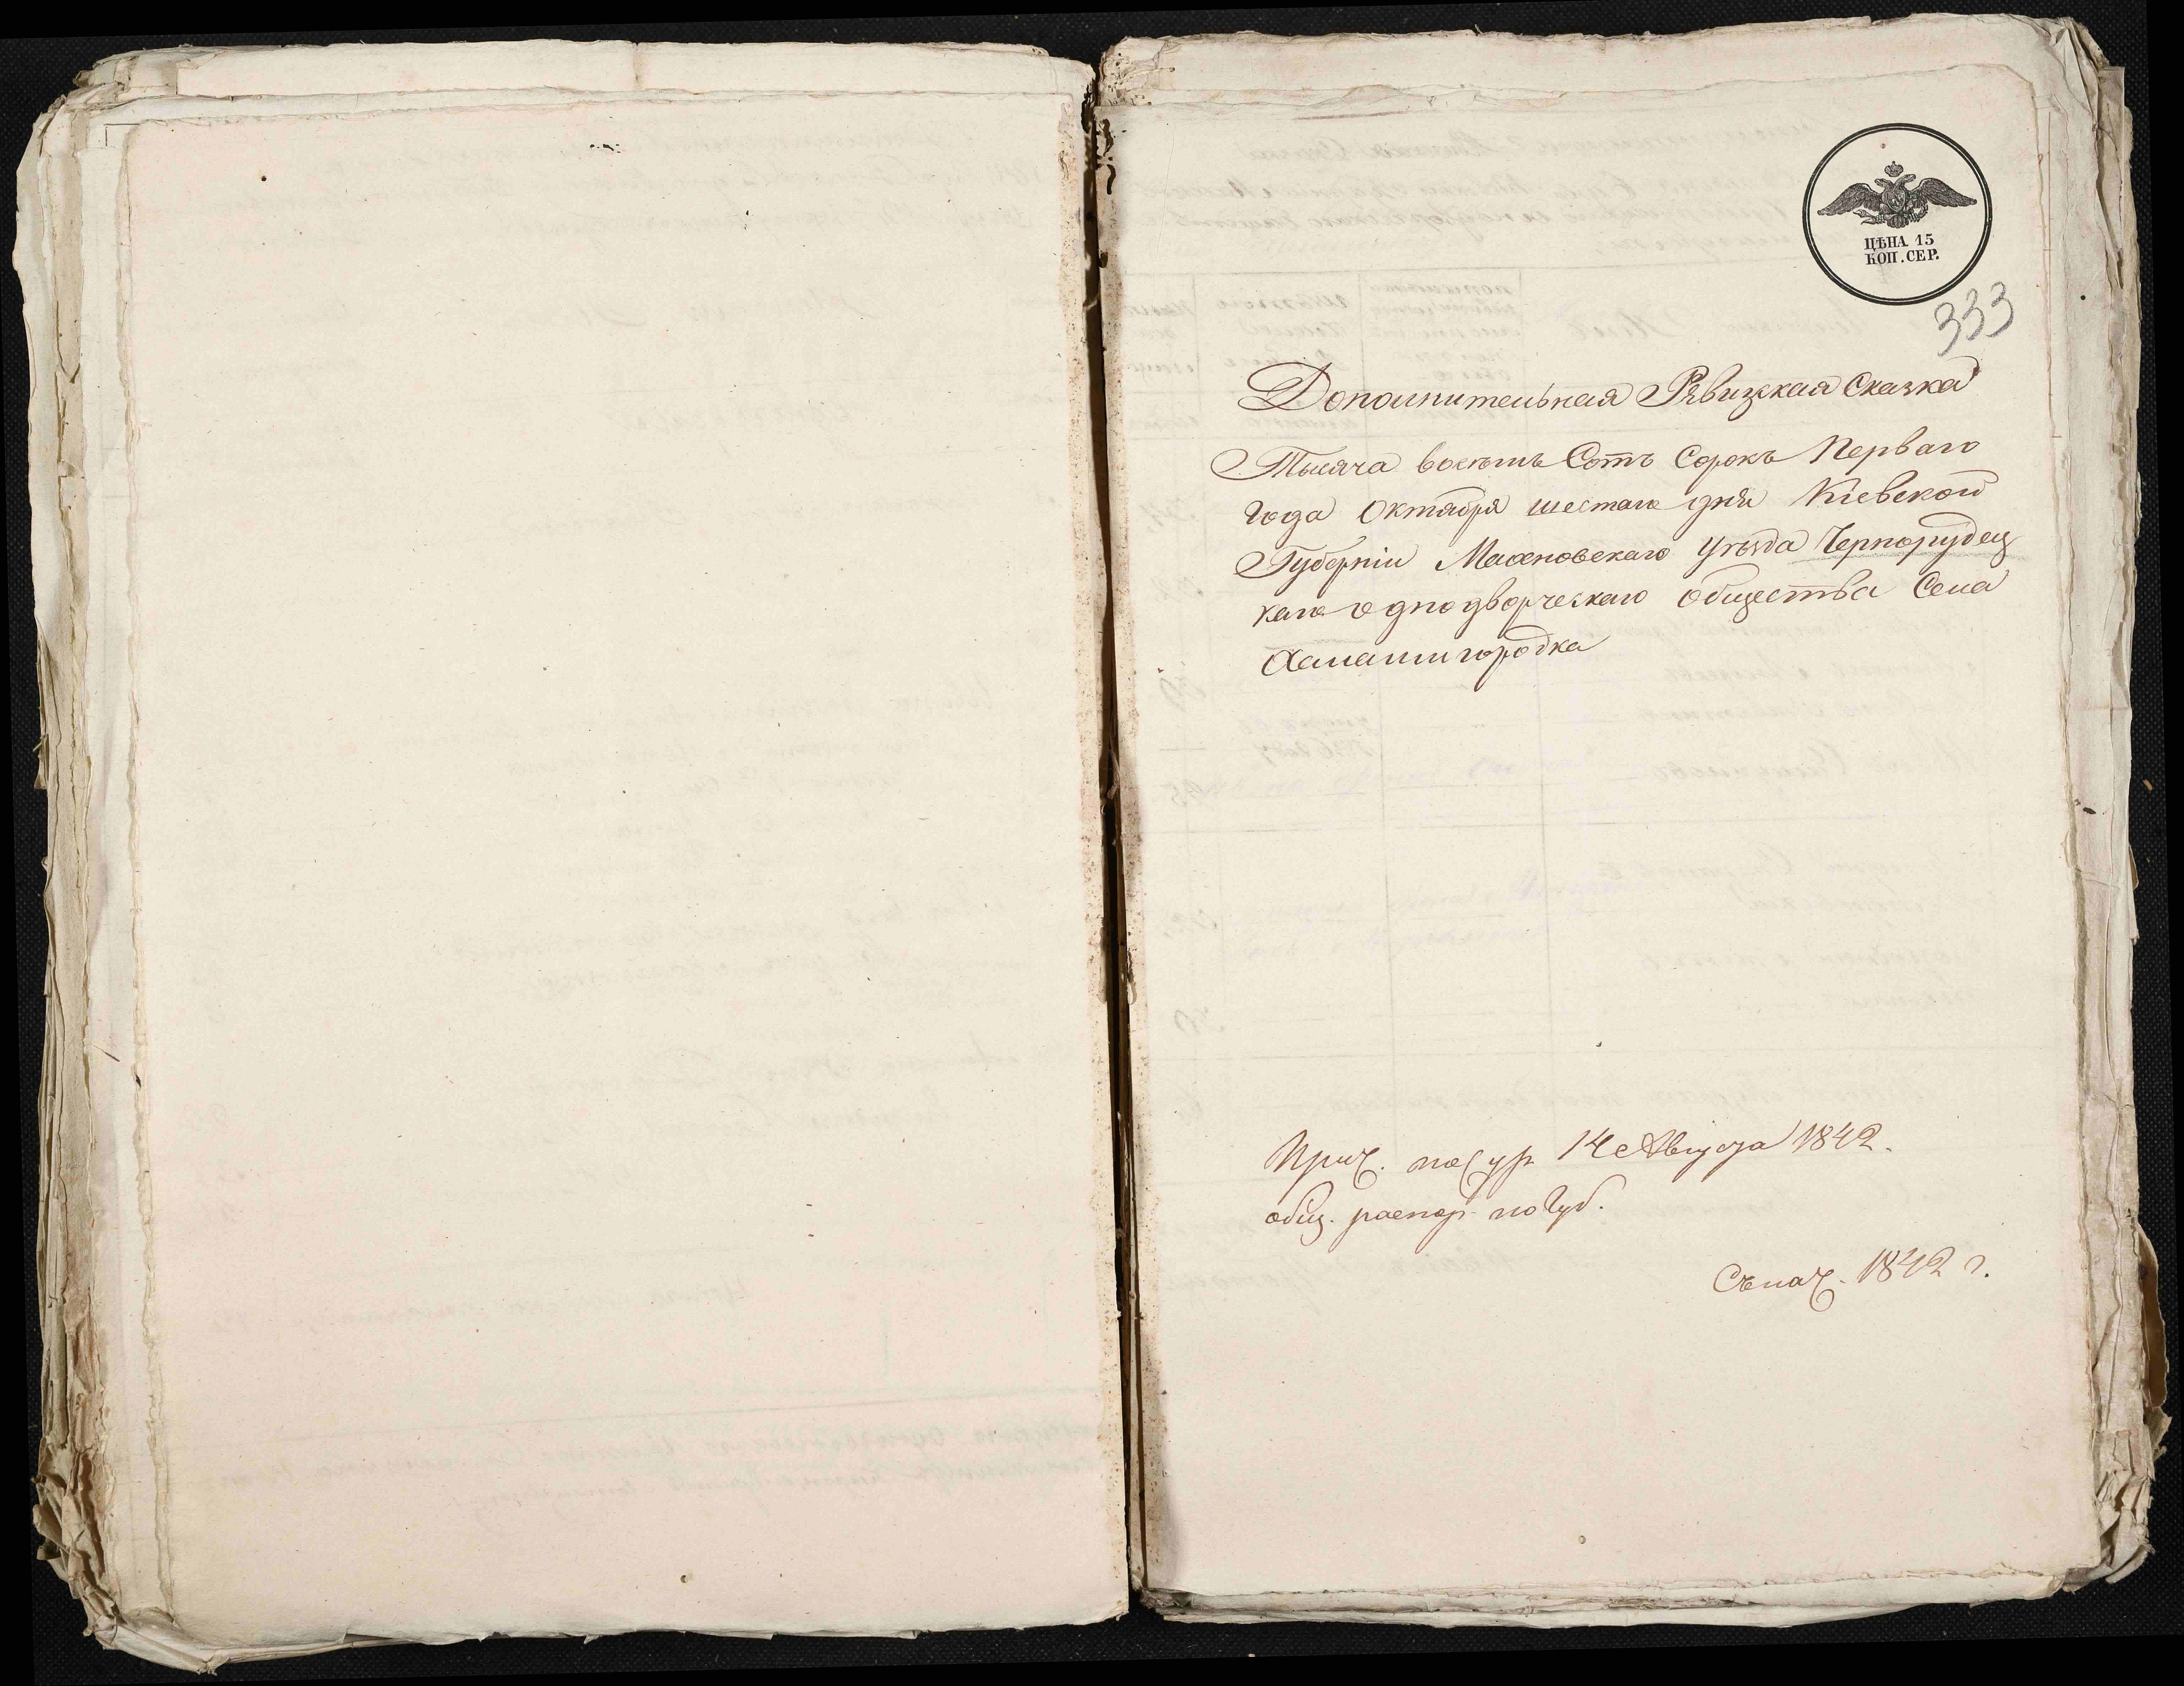 ЦѢНА 15
КОП. СЕР.
333
Дополнительная Ревизская Сказка
Тысяча восемь Сотъ Сорокъ Перваго
года Октября шестаго дня Кіевской
Губерніи Махновскаго уѣзда Чернорудец
каго однодворческаго общества Села
Халаимгородка
14 Августа 1842.
общ. распор. по Губ.
1842 г.